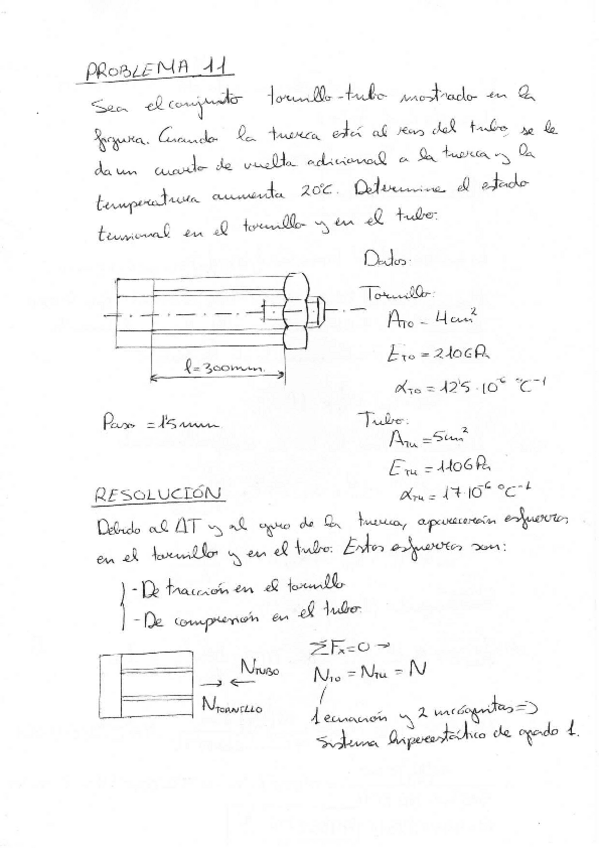 PROBLEMA 11
Sea el conjunto tornillo-tubo mostrado en la
figura. Cuando la tuerca está al ras del tubo, se le
da un cuarto de vuelta adicional a la tuerca y la
temperatura aumenta 20°C. Determine el estado
tensional en el tornillo y en el tubo.
Datos:
Tornillo:
A_TO = 4cm²
E_TO = 210GPa
α_TO = 12'5·10⁻⁶ °C⁻¹
l=300mm.
Paso = 1'5mm
Tubo:
A_TU = 5cm²
E_TU = 110GPa
α_TU = 17·10⁻⁶ °C⁻¹
RESOLUCIÓN
Debido al ΔT y al giro de la tuerca, aparecerán esfuerzos
en el tornillo y en el tubo. Estos esfuerzos son:
- De tracción en el tornillo
- De compresión en el tubo.
N_TUBO
N_TORNILLO
ΣFx=0 →
N_TO = N_TU = N
1 ecuación y 2 incógnitas ⇒
Sistema hiperestático de grado 1.